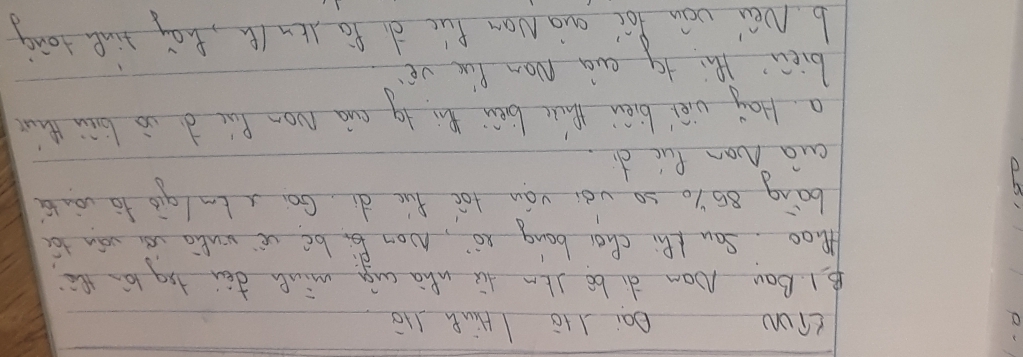 BTVN Đại 1 tờ / Hình 1 tờ
B1. Bạn Nam đi bộ 1km từ nhà của mình đến trg tâm thể
thao. Sau khi chơi bóng rổ, Nam đi bộ về nhà với vận tốc
bằng 85% so với vận tốc lúc đi. Gọi x km/giờ là vận tốc
của Nam lúc đi.
a. Hãy viết biểu thức biểu thị tg của Nam lúc đi và biểu thức
biểu thị tg của Nam lúc về.
b. Nếu vận tốc của Nam lúc đi là km/h, hãy tính tổng